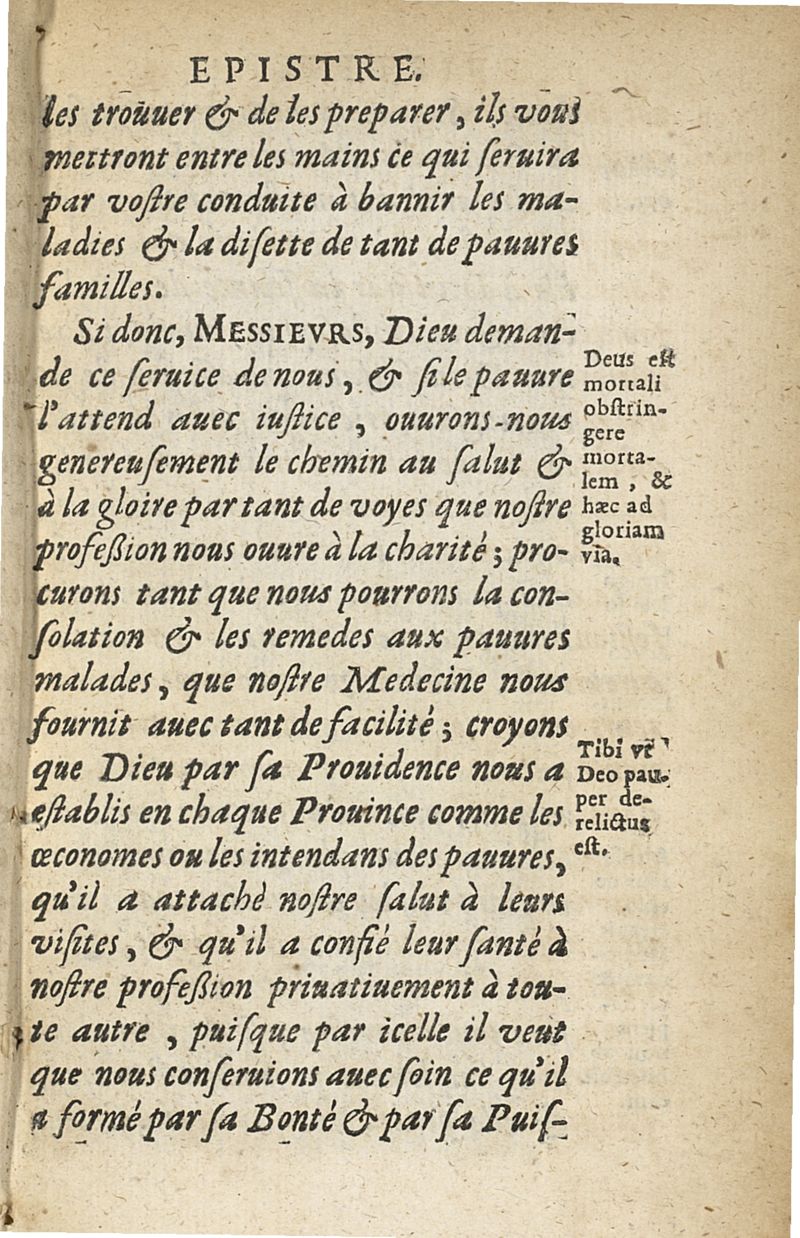 EPISTRE.
les trouuer & de les preparer, ils vous
mettront entre les mains ce qui ſeruira
par voſtre conduite à bannir les ma-
ladies & la diſette de tant de pauures
familles.
Si donc, MESSIEVRS, Dieu deman-
de ce ſeruice de nous, & ſi le pauure
l'attend auec iuſtice, ouurons-nous
genereuſement le chemin au ſalut &
à la gloire par tant de voyes que noſtre
profeßion nous ouure à la charité; pro-
curons tant que nous pourrons la con-
ſolation & les remedes aux pauures
malades, que noſtre Medecine nous
fournit auec tant de facilité; croyons
que Dieu par ſa Prouidence nous a
eſtablis en chaque Prouince comme les
œconomes ou les intendans des pauures,
qu'il a attaché noſtre ſalut à leurs
viſites, & qu'il a confié leur ſanté à
noſtre profeßion priuatiuement à tou-
te autre, puiſque par icelle il veut
que nous conſeruions auec ſoin ce qu'il
a formé par ſa Bonté & par ſa Puiſ-
Deus eſt
mortali
obſtrin-
gere
morta-
lem, &
hæc ad
gloriam
via.
Tibi vt
Deo pau-
per de-
relictus
eſt.